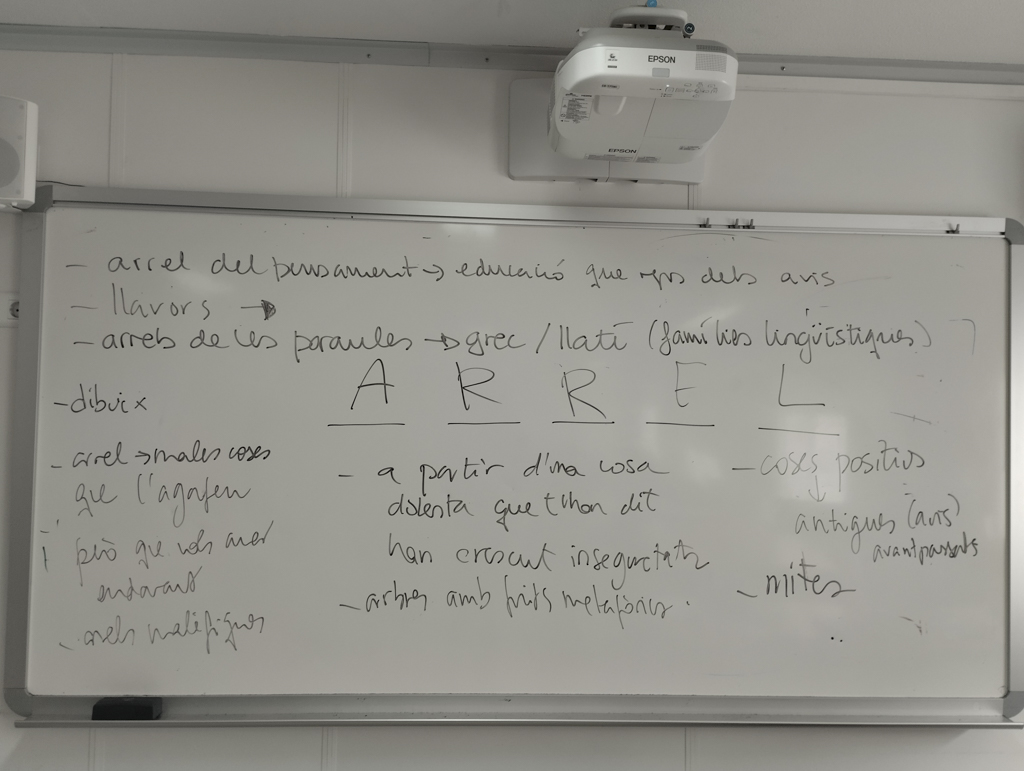 EPSON
EPSON
- arrel del pensament → educació que reps dels avis
- llavors →
- arrels de les paraules → grec / llatí (famílies lingüístiques)
A R R E L
- dibuix
- arrel → males coses
que l'agafen
i però que vols anar
endavant
- arrels malèfiques
- a partir d'una cosa
dolenta que t'han dit
han crescut inseguretats
- arbres amb fruits metafòrics.
- coses positives
↓
antigues (avis)
avantpassats
- mites